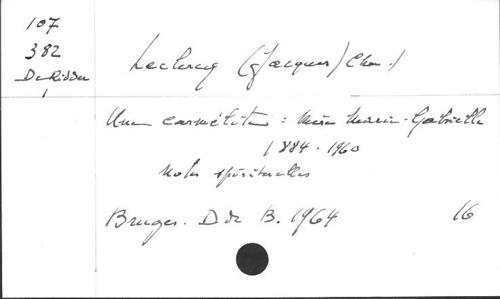 107
382
De Ridder
Leclercq (Jacques) Chan.
Une carmélite : Mère Marie-Gabrielle
1884-1960
Notes spirituelles
Bruges. D de B. 1964 16